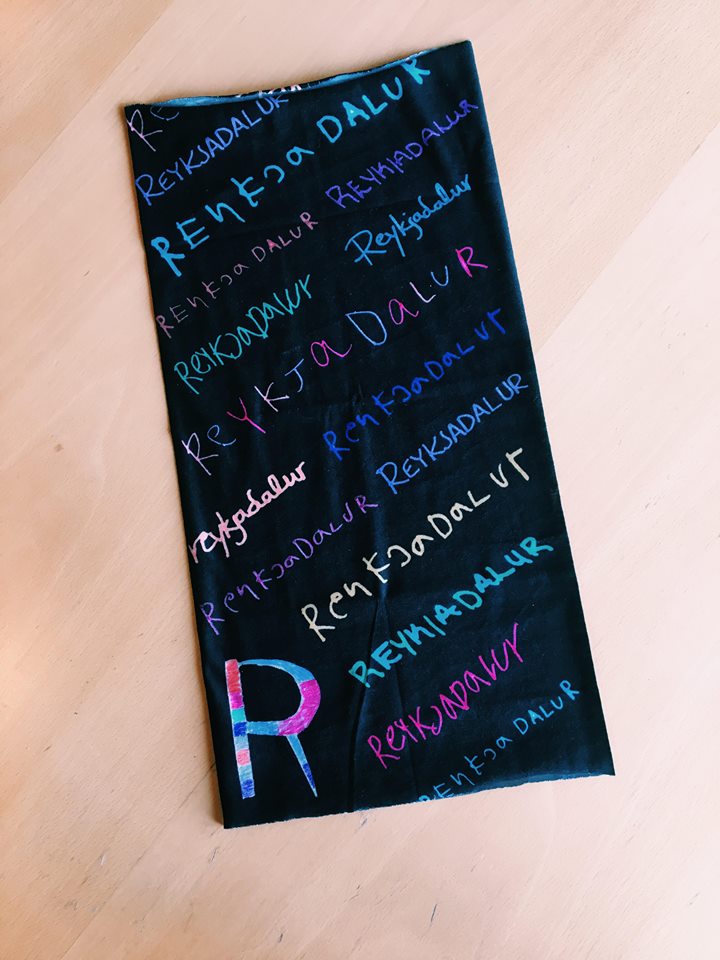 Re
REYKJADALUR
REYKJADALUR
REYKJADALUR
REYKJADALUR
Reykjadalur
REYKJADALUR
ReYKJADALUR
ReYKJaDaLUR
ReyKJaDALUr
REYKJADALUR
reykjadalur
ReyKJaDALUR
ReyKJaDaLUr
REYKJADALUR
ReYKJADALUR
R
REYKJa DALUR